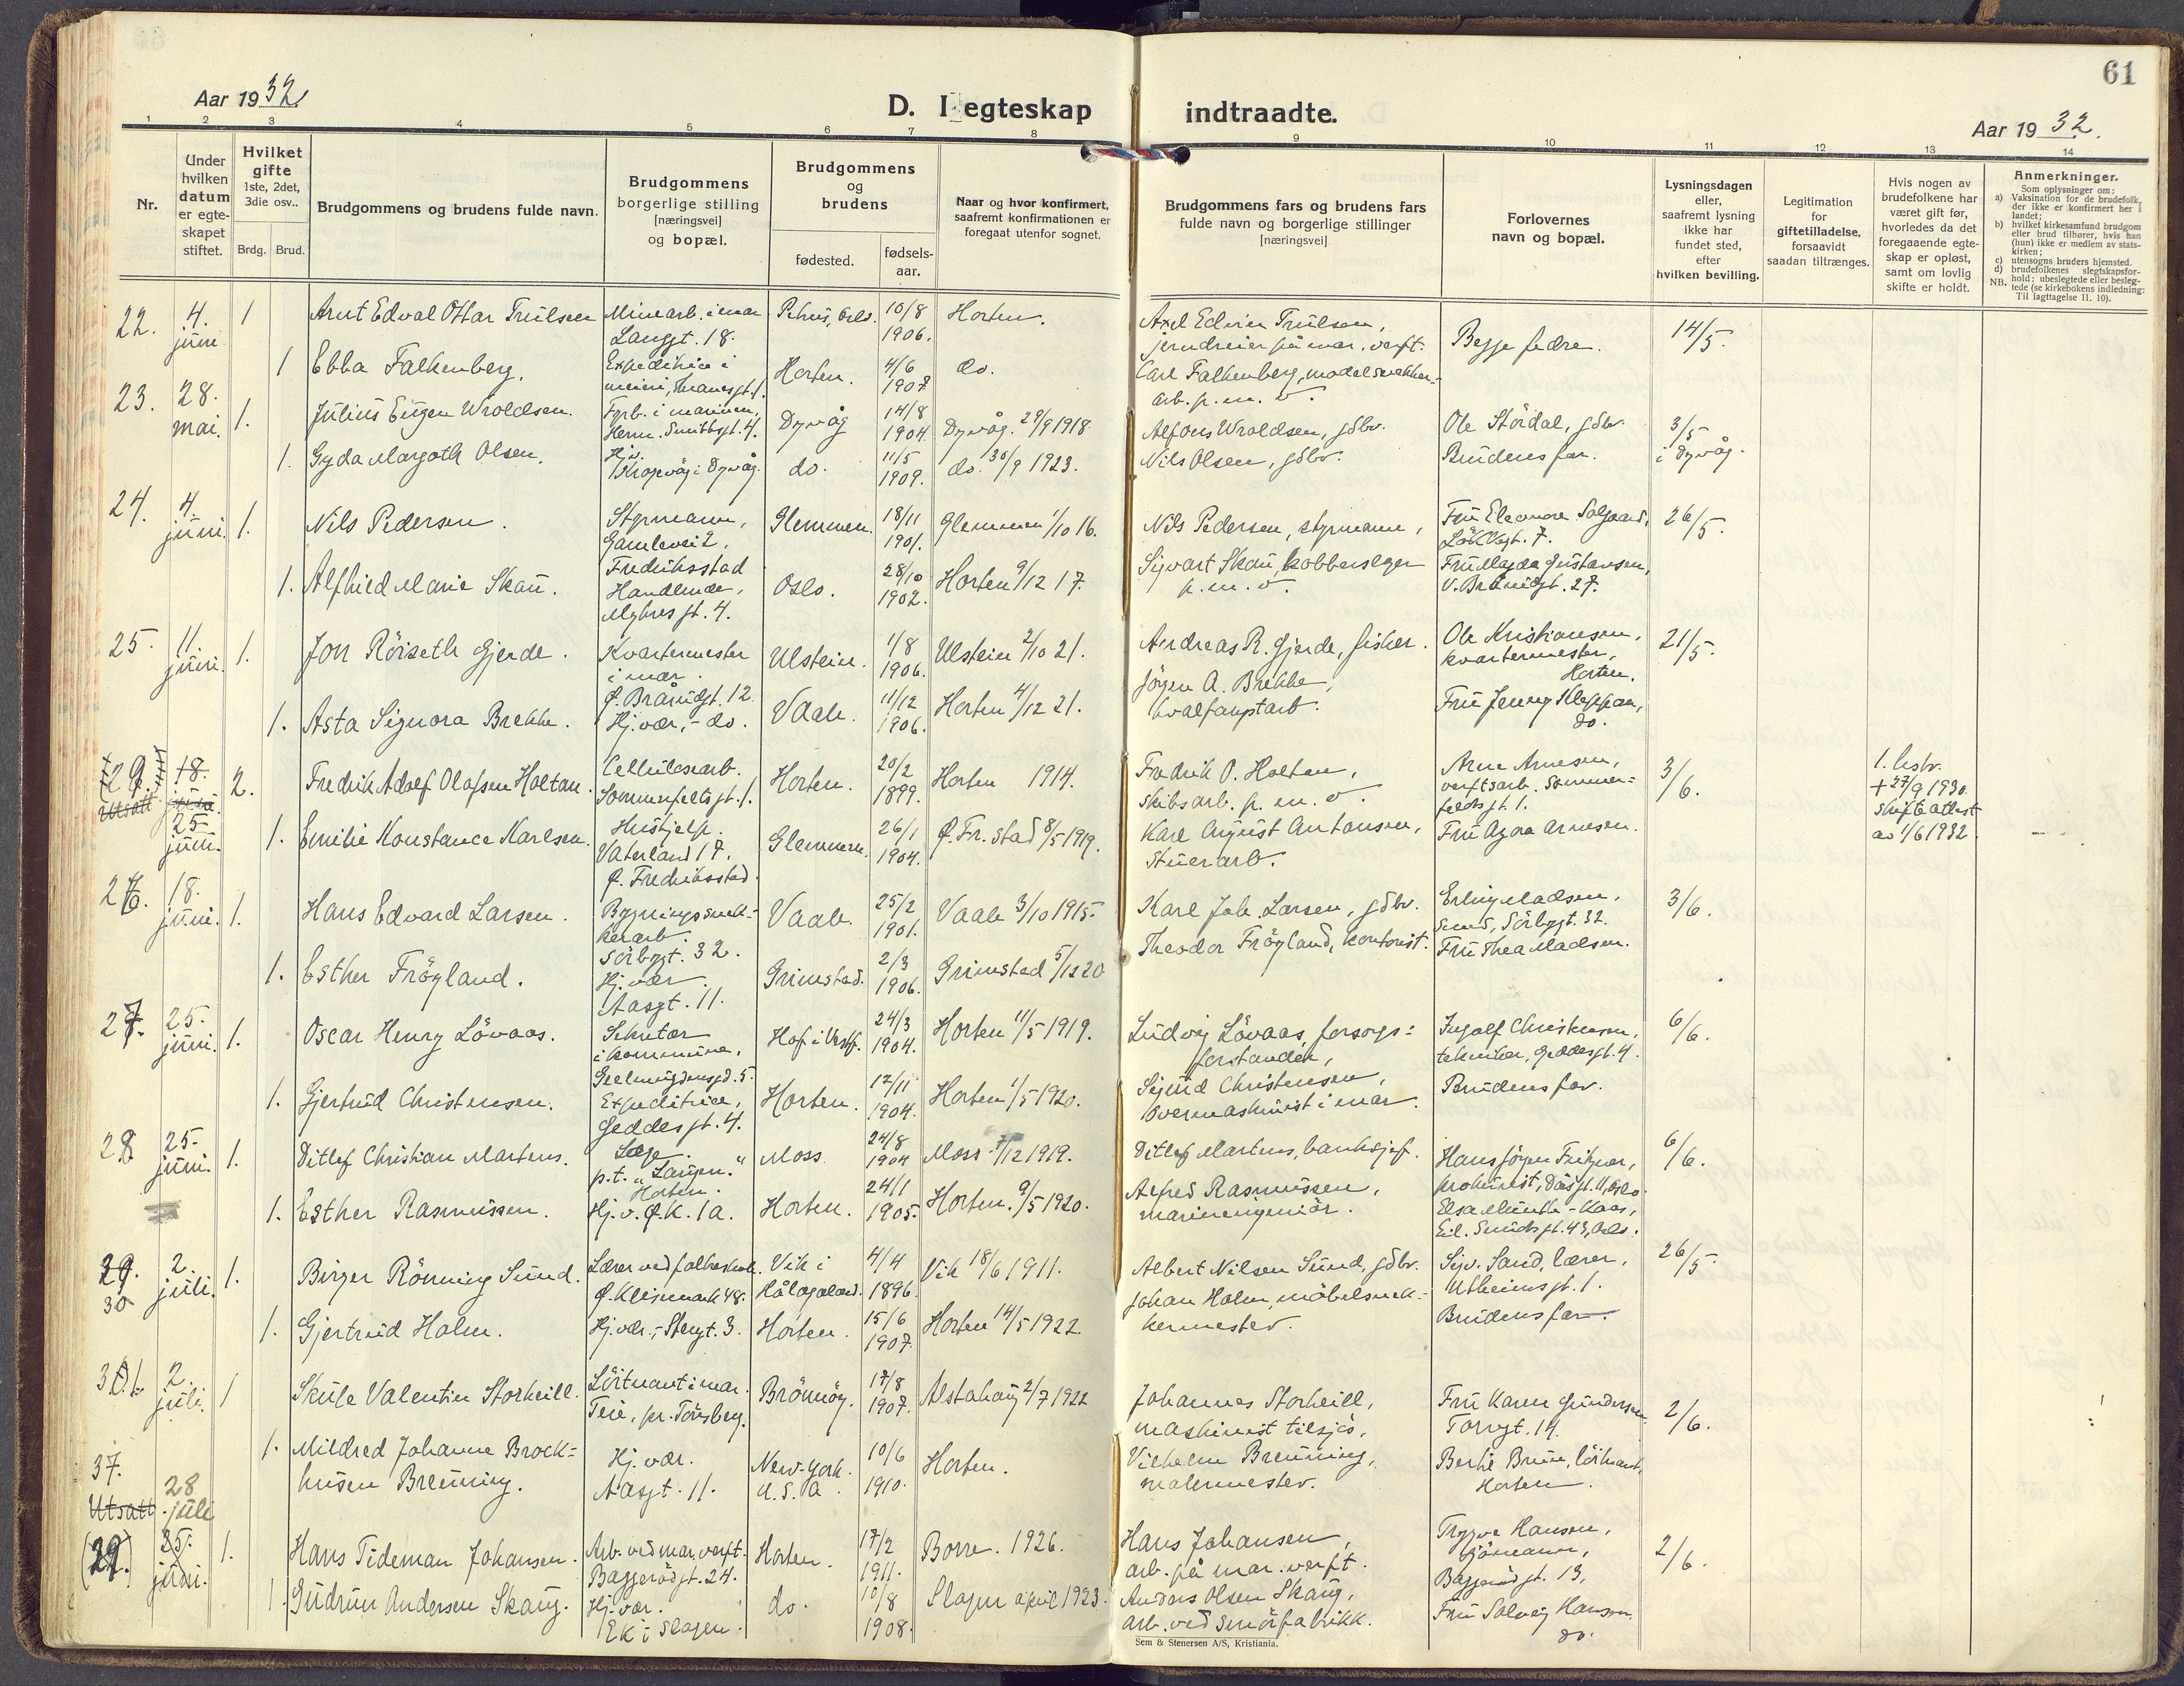 61
Aar 1932.
D. I egteskap indtraadte.
Aar 1932.
1 2 3 4 5 6 7 8 9 10 11 12 13 14
Nr.
Under hvilken datum er egte-skapet stiftet.
Hvilket gifte 1ste, 2det, 3die osv..
Brdg. Brud.
Brudgommens og brudens fulde navn.
Brudgommens borgerlige stilling [næringsvei] og bopæl.
Brudgommens og brudens
fødested.
fødsels-aar.
Naar og hvor konfirmert, saafremt konfirmationen er foregaat utenfor sognet.
Brudgommens fars og brudens fars fulde navn og borgerlige stillinger [næringsvei]
Forlovernes navn og bopæl.
Lysningsdagen eller, saafremt lysning ikke har fundet sted, efter hvilken bevilling.
Legitimation for giftetilladelse, forsaavidt saadan tiltrænges.
Hvis nogen av brudefolkene har været gift før, hvorledes da det foregaaende egte-skap er opløst, samt om lovlig skifte er holdt.
Anmerkninger.
Som oplysninger om:
a) Vaksination for de brudefolk, der ikke er konfirmert her i landet;
b) hvilket kirkesamfund brudgom eller brud tilhører, hvis han (hun) ikke er medlem av stats-kirken;
c) utensogns bruders hjemsted.
d) brudefolkenes slegtskapsfor-hold: ubeslegtede eller besleg-tede (se kirkebokens indledning:
NB. Til iagttagelse II, 10).
22. 4. juni 1 Arnt Edval Ottar Trulsen Minearb. i mar Langgt. 18. 10/8 1906. Horten. Axel Edvin Trulsen, jerndreier på mar. verft. Begge fedre. 14/5.
1 Ebba Falkenberg. Expeditrice i meieri, Horten. 4/6 1907 do. Carl Falkenberg, modelsnekker-arb. p.m.v.
23. 28. mai. 1. Julius Eugen Wroldsen. Fyrb. i marinen, Herm. Smithsgt. 4. Dyvåg 14/8 1904 Dyvåg. 29/9 1918 Alfons Wroldsen, gdbr. Ole Stördal, gdbr. 3/5 i Dyvåg.
1. Gyda Margoth Olsen. Hj.v. Dyvåg. do. 11/5 1909. do. 30/9 1923. Nils Olsen, gdbr. Brudens far.
24. 4. juni. 1. Nils Pedersen. Styrmann, Gamlevei 2, Fredriksstad Glemmen. 18/11 1901. Glemmen 1/10 16. Nils Pedersen, styrmann, Fru Eleonore 26/5.
1. Alfhild Marie Skau. Handlende, Myhres gt. 4. Oslo. 28/10 1902. Horten 9/12 17. Sigvart Skau, kobberslager p.m.v. Fru Magda Gustavsen, V. Braarudgt. 27.
25. 11. juni. 1. Jon Röiseth Gjerde. Kvartermester i mar. Ø. Braarudgt. 12 Ulstein. 1/8 1906. Ulstein 2/10 21. Andreas R. Gjerde, fisker. Ole Kristiansen, kvartermester, Horten. 21/5.
1. Asta Signora Brekke. Hj.vær., - do. Vaale. 11/12 1906. Horten 4/12 21. Jörgen A. Brekke, hvalfangstarb. Fru Jenny Kleppan, do.
(29.) Utsatt 18. juni 25. juni. 2. Fredrik Adolf Olafsen Holtan. Cellulosearb. Sommerfeltsgt. 1. Horten. 20/2 1899. Horten 1914. Fredrik O. Holtan, skibsarb. p.m.v. Arne Arnesen, verftsarb. Sommer-feldsgt. 1. 3/6. 1. hustr. + 27/9 1930. Skifteattest av 1/6 1932.
1. Emilie Konstance Karlsen. Hushjelp. Vaterland 17. Ø. Fredriksstad. Glemmen. 26/1 1904. Ø. Fr.stad 8/5 1919. Karl August Antonsen, stuerarb. Fru Agora Arnesen.
26. 18. juni. 1. Hans Edvard Larsen. Bygningssnek-kerarb. Sörbygt. 32. Vaale. 25/2 1901. Vaale 3/10 1915. Karl Joh. Larsen, gdbr. Erling Madsen, Sörbygt. 32. 3/6.
1. Esther Frögland. Hj.vær. Aasgt. 11. Grimstad. 2/3 1906. Grimstad 5/12 20 Theodor Frögland, kontorist. Fru Thea Madsen.
27. 25. juni. 1. Oscar Henry Lövaas. Sekretær i kommune, Hof i Vestf. 24/3 1904. Horten 11/5 1919. Ludvig Lövaas, forsorgs-forstander, Ingolf Christensen, tekniker, Geddesgt. 4. 6/6.
1. Gjertrud Christensen. Expeditrice, Geddesgt. 4. Horten. 12/11 1904. Horten 1/5 1920. Sigurd Christensen, overmaskinist i mar. Brudens far.
28 25. juni. 1. Ditlef Christian Martens. Læge p.t. "Laugen." Horten. Moss 24/8 1904 Moss 7/12 1919. Ditlef Martens, banksjef. Hans Jörgen prokurist, Oslo. 6/6.
1. Esther Rasmussen. Hj.v. Ø.K. 1a. Horten. 24/1 1905. Horten. 9/5 1920. Alfred Rasmussen, marineingeniör. Elsa Munthe-Kaas, Eil. Sundsgt. 43, Oslo.
29. 30 2. juli. 1. Birger Rönning Sund. Lærer ved folkeskole. Ø. Keisemark 48. Vik i Hålogaland. 4/4 1896. Vik 18/6 1911. Albert Nilsen Sund, gdbr. Sigv. Sand, lærer, Utheimsgt. 1. 26/5.
1. Gjertrud Holm. Hj.vær.,- Stengt. 3. Horten. 15/6 1907. Horten 14/5 1922. Johan Holm, möbelsnek-kermester. Brudens far.
31. 2. juli. 1 Skule Valentin Storheill. Löitnant i mar. Teie, pr. Tönsberg. Brönnöy. 17/8 1907. Alstahaug 2/7 1922 Johannes Storheill, maskinist tilsjös. Fru Karen Gundersen Torvgt. 14. 2/6.
1. Mildred Johanne Brock-husen Breuning. Hj.vær. Aasgt. 11. New-York. U.S.A. 10/6 1910. Horten. Vilhelm Breuning, malermester. löitnant, Horten.
37. Utsatt (29.) 28 juli 25. juni. 1. Hans Tideman Johansen. Arb. ved mar. verft. Baggerödgt. 24. Horten. 17/2 1911. Borre. 1926. Hans Johansen, arb. på mar. verft. Trygve Hansen, sjömann, Baggerödgt. 13, 2/6.
1. Gudrun Andersen Skaug. Hj.vær. Ek i Slagen. do. 10/8 1908. Slagen april 1923. Anders Olsen Skaug, arb. ved smörfabrikk. Fru Solveig Hansen. do.
Sem & Stenersen A/S, Kristiania.